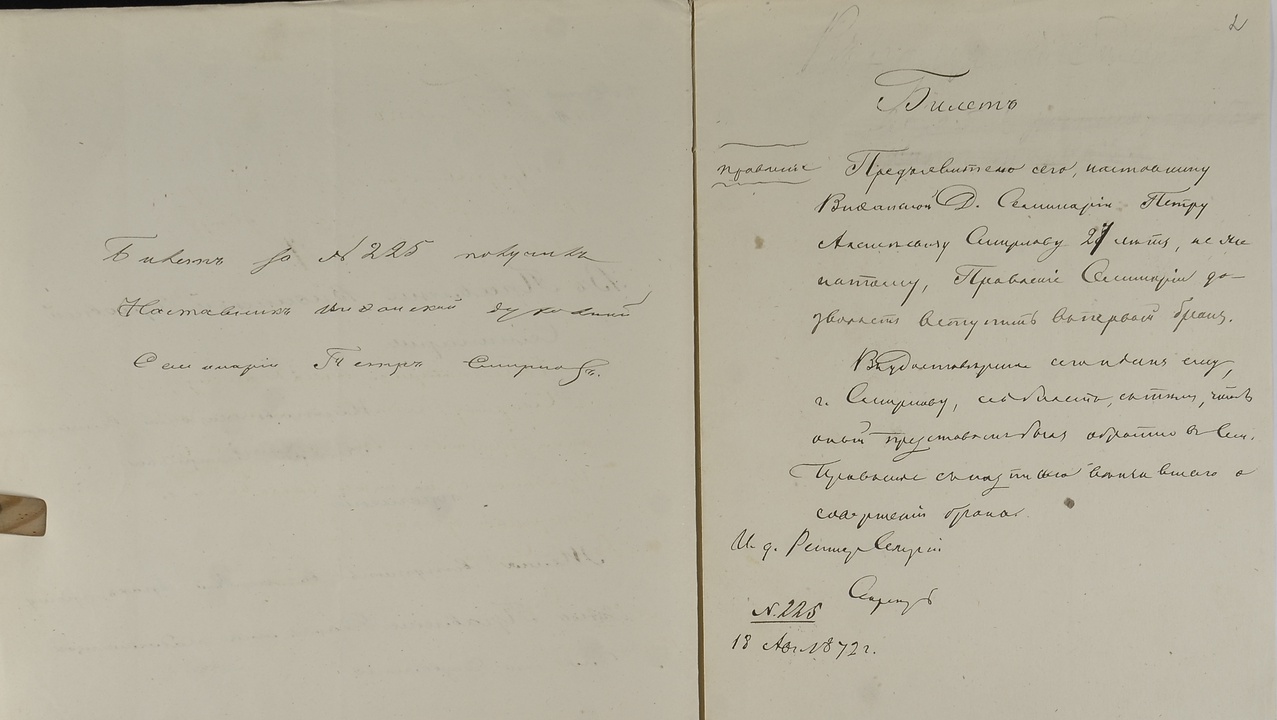 Билетъ за № 225 получилъ
Наставникъ Виѳанской духовной
Семинаріи Петръ Смирновъ.
2
Билетъ
Правленіе
Предъявителю сего, наставнику
Виѳанской Д. Семинаріи Петру
Алексѣевичу Смирнову 27 лѣтъ, не же
натому, Правленіе Семинаріи до-
зволяетъ вступить въ первый бракъ.
Въ удостовѣреніе сего и данъ ему,
г. Смирнову, сей билетъ, съ тѣмъ, чтобъ
оный представленъ былъ обратно въ Сем.
Правленіе съ надписью о
совершеніи брака.
И. д. Ректора Семинаріи
№ 225
18 Авг. 1872 г.